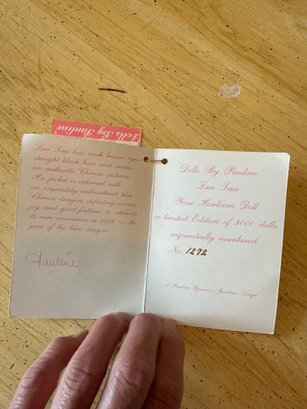 Dolls By Pauline
Lin Tau has dark brown eyes
straight black hair and wears
an authentic Chinese costume
His jacket is adorned with
an exquisitely embroidered blue
Chinese dragon depicting success
joy and good fortune, to celebrate
its rare occurrence in 1988 as the
year of the blue dragon
Pauline
Dolls By Pauline
Lin Tau
Your Heirloom Doll
a limited Edition of 3000 dolls
sequentially numbered
No. 1272
A Pauline Bjonness-Jacobsen Design